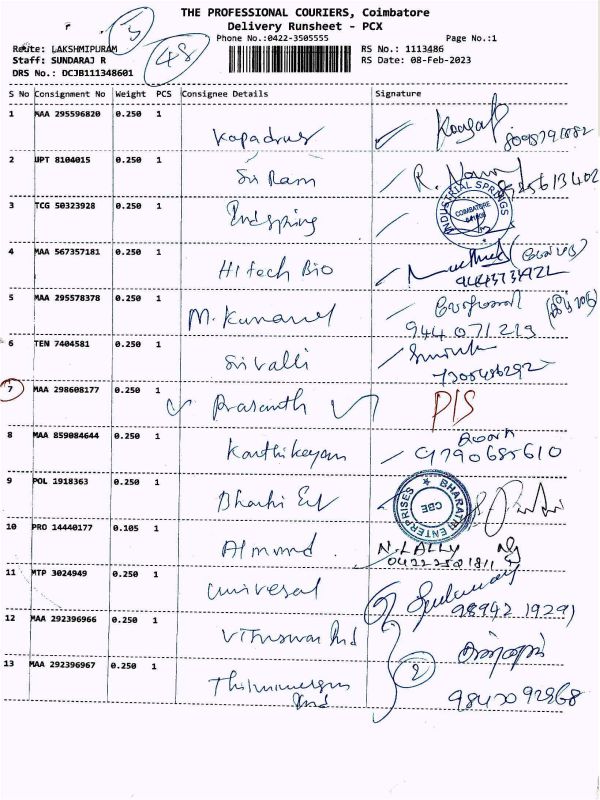 THE PROFESSIONAL COURIERS, Coimbatore
Delivery Runsheet - PCX
Phone No.:0422-3505555 Page No.:1
Route: LAKSHMIPURAM RS No.: 1113486
Staff: SUNDARAJ R RS Date: 08-Feb-2023
DRS No.: DCJB111348601
48
S No Consignment No Weight PCS Consignee Details Signature
1 MAA 295596820 0.250 1
2 UPT 8104015 0.250 1 Sri Ram R.
3 TCG 50323928 0.250 1 Indspring INDUSTRIAL SPRINGS COIMBATORE
4 MAA 567357181 0.250 1 Hitech Bio
5 MAA 295578378 0.250 1 M.
944 071 219
6 TEN 7404581 0.250 1 Sri Valli
7305436292
7 MAA 298608177 0.250 1 Prasanth P/S
8 MAA 859084644 0.250 1 Karthikeyan 9790685610
9 POL 1918363 0.250 1 BHARATRI ENTERPRISES CBE
10 PRO 14440177 0.105 1 Almond N. LALLY
0422 2501811
11 MTP 3024949 0.250 1 universal
98942 19291
12 MAA 292396966 0.250 1
13 MAA 292396967 0.250 1 2
Ind